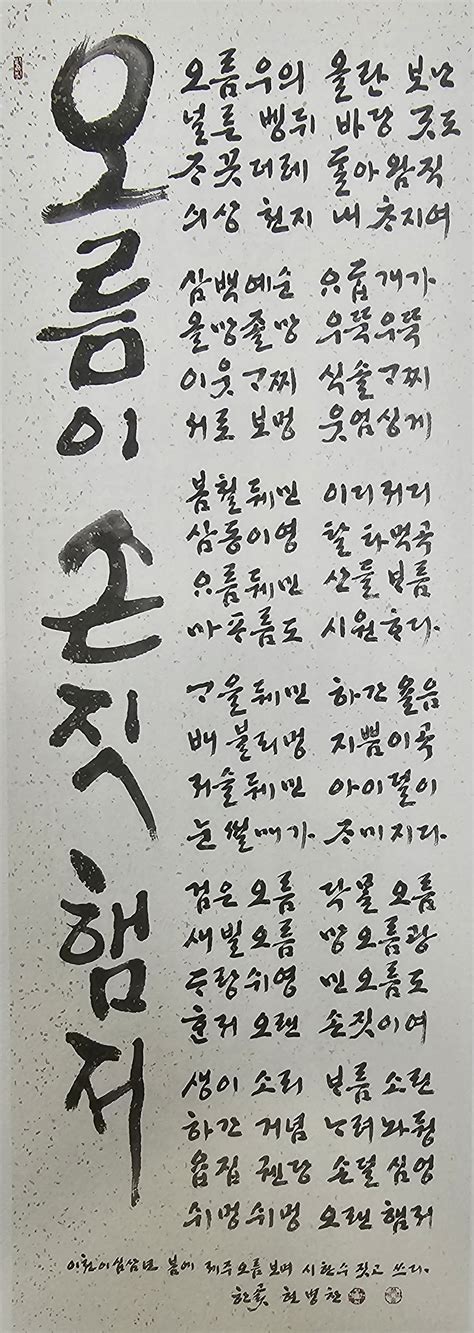 오름이 손직 햄저
오름우의 올란 보난
널른 벵뒤 바당 ᄀᆞᆺ도
ᄌᆞ끗더레 ᄃᆞᆯ아왐직
싀상 천지 내 ᄎᆞ지여
삼백예순 ᄋᆢᄃᆞᆸ개가
올망졸망 우뚝우뚝
이웃ᄀᆞ찌 식솔ᄀᆞ찌
서로 보멍 웃엄싱게
봄철뒈민 이디저디
삼동이영 탈 타먹곡
ᄋᆢ름뒈민 산들ᄇᆞ름
마ᄑᆞ름도 시원ᄒᆞ다.
ᄀᆞ을뒈민 하간 ᄋᆢᆯ음
배 불리멍 지쁨이곡
저슬뒈민 아이덜이
눈썰매가 ᄌᆞ미지다.
검은오름 닥ᄆᆞᆯ오름
새빌오름 망오름광
ᄃᆞ랑쉬영 민오름도
ᄒᆞᆫ저 오랜 손짓이여
생이 소리 ᄇᆞ름 소린
하간 거념 ᄂᆞ려놔둥
ᄋᆢᆸ집 궨당 손덜 심엉
쉬멍쉬멍 오랜 햄저
이천이십삼년 봄에 제주오름 보며 시 한 수 짓고 쓰다.
한곬 현병찬